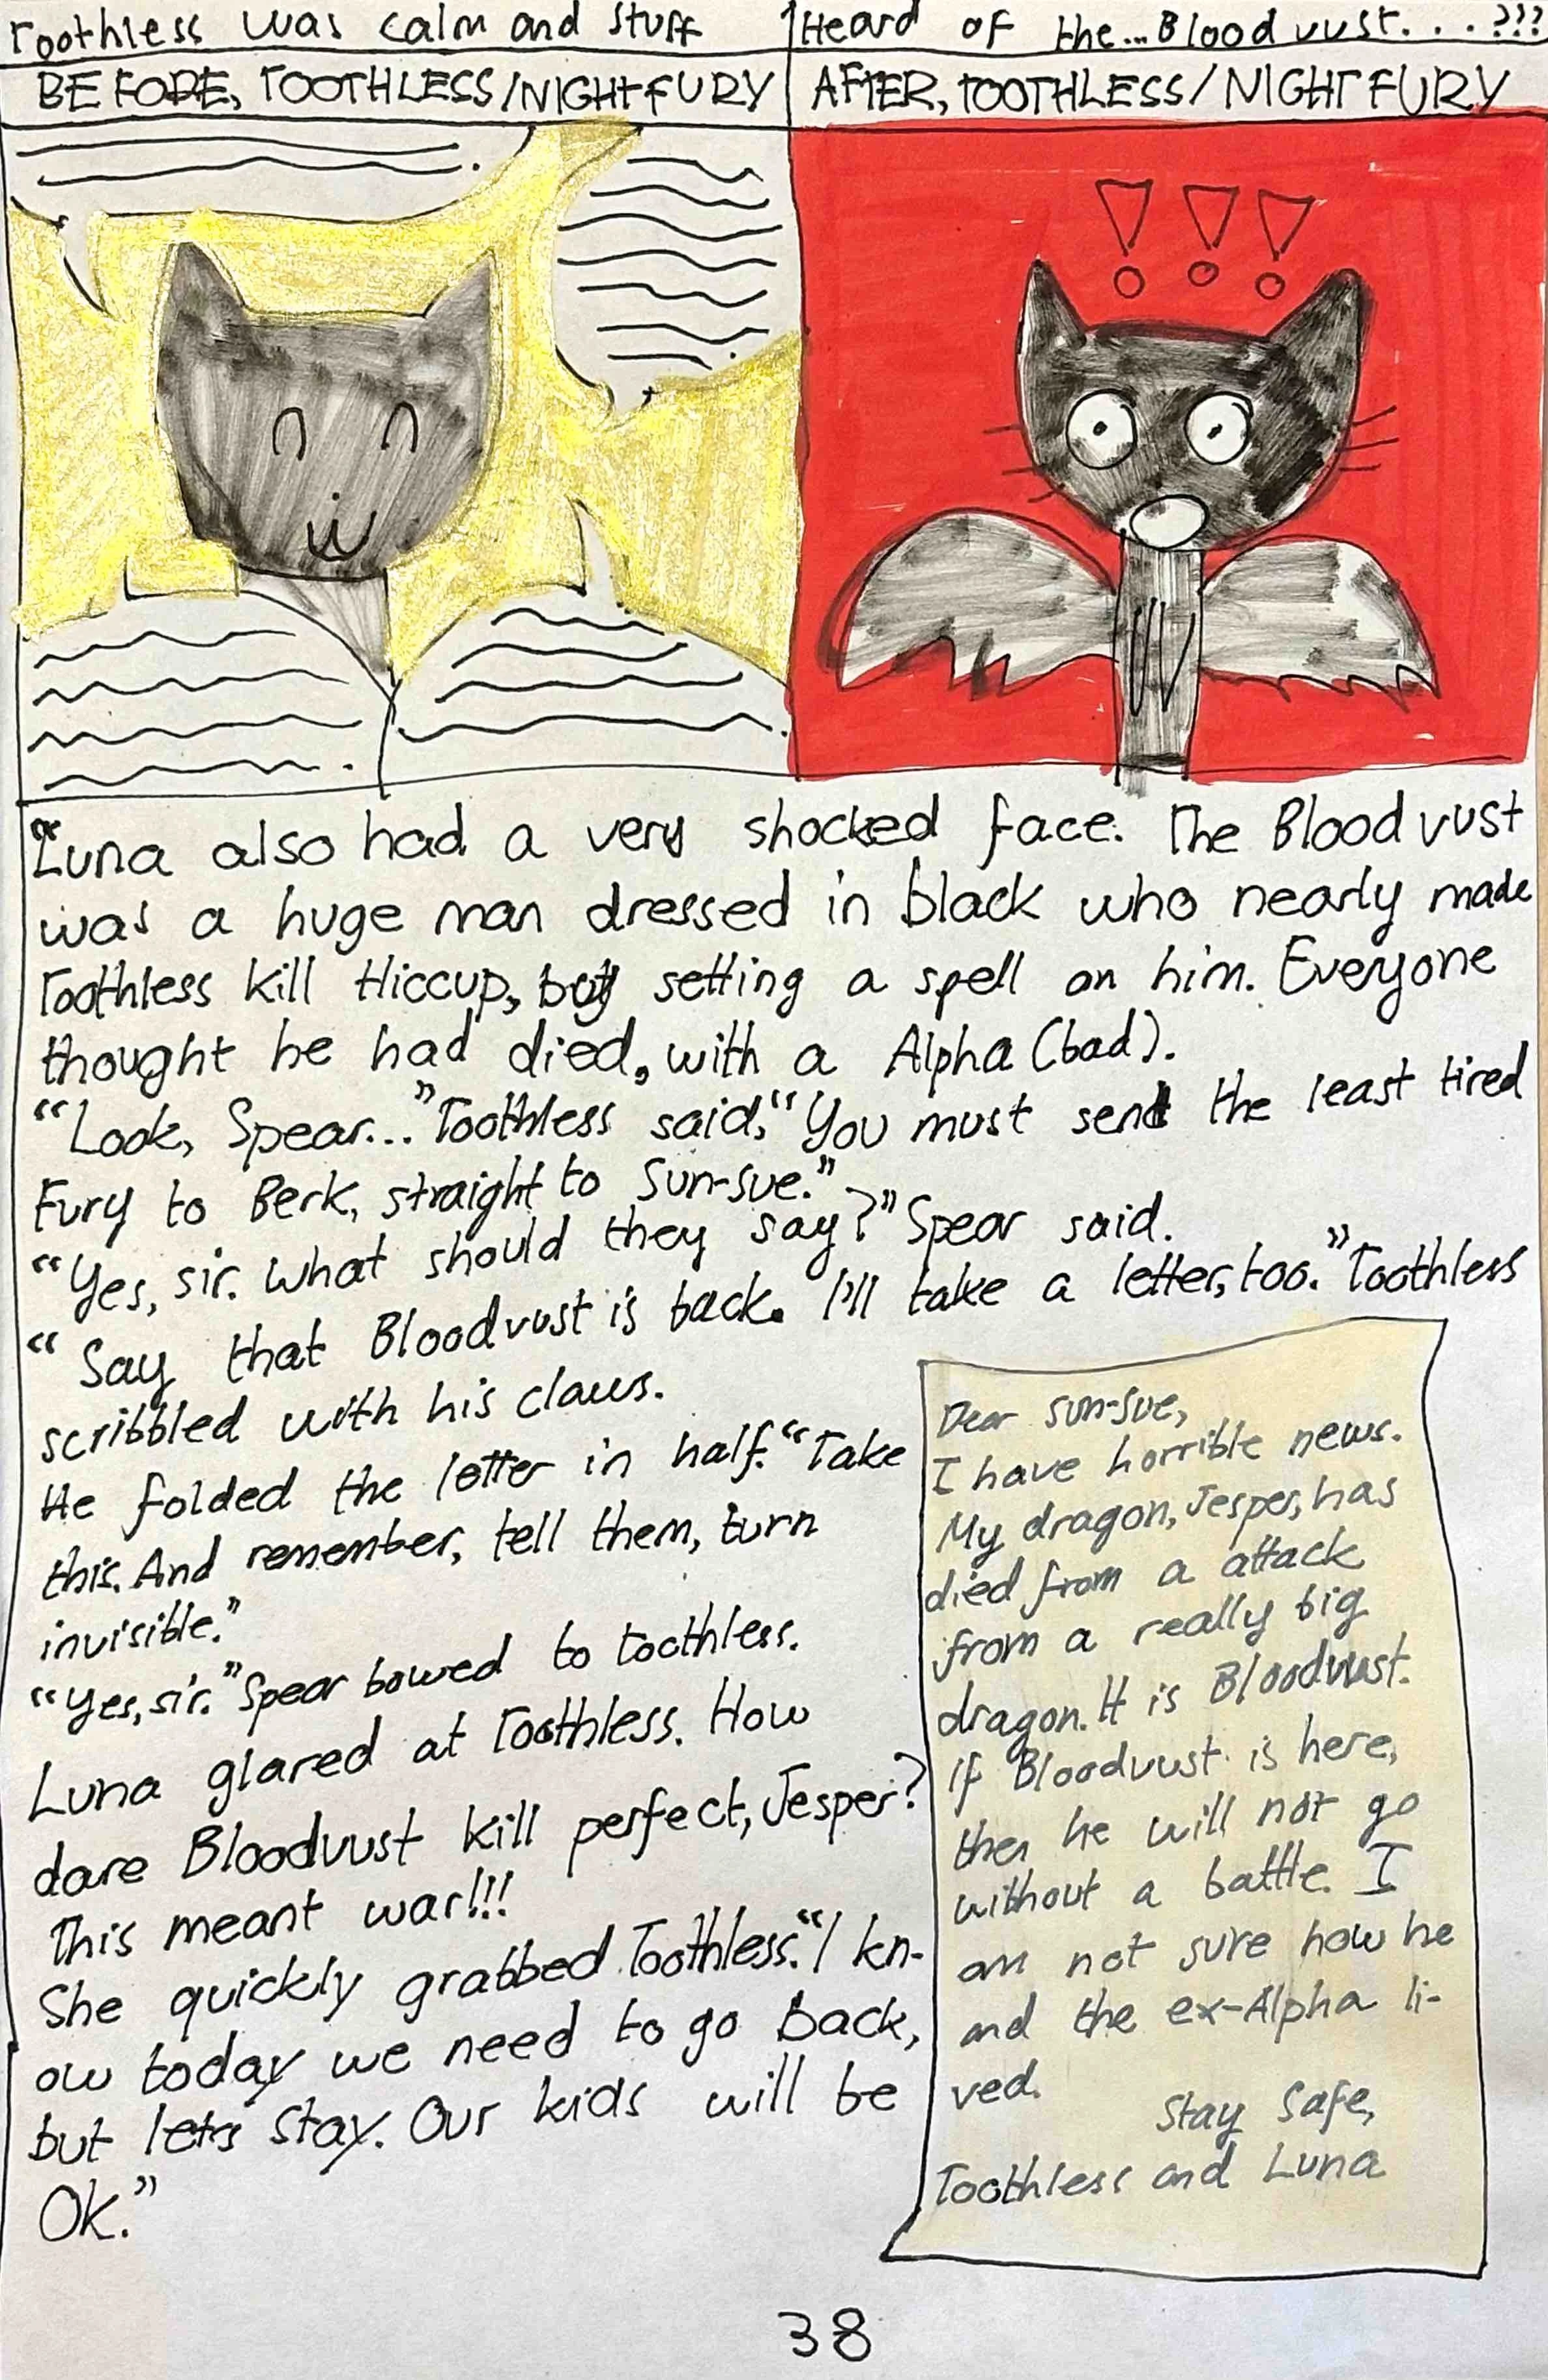 Toothless was calm and stuff
Heard of the... Bloodvust. . . .???
BEFORE, TOOTHLESS/NIGHT FURY
AFTER, TOOTHLESS/NIGHT FURY
!!!
Luna also had a very shocked face. The Bloodvust
was a huge man dressed in black who nearly made
Toothless kill Hiccup, by setting a spell on him. Everyone
thought he had died, with a Alpha (bad).
“Look, Spear...” Toothless said, “You must send the least tired
Fury to Berk, straight to Sun-sue.”
“Yes, sir. What should they say?” Spear said.
“Say that Bloodvust is back. I'll take a letter, too.” Toothless
scribbled with his claws.
He folded the letter in half. “Take
this. And remember, tell them, turn
invisible.”
“Yes, sir.” Spear bowed to toothless.
Luna glared at Toothless. How
dare Bloodvust kill perfect, Jesper?
This meant war!!!
She quickly grabbed Toothless. “I kn-
ow today we need to go back,
but let's stay. Our kids will be
Ok.”
Dear Sun-Sue,
I have horrible news.
My dragon, Jesper, has
died from a attack
from a really big
dragon. It is Bloodvust.
If Bloodvust is here,
then he will not go
without a battle. I
am not sure how he
and the ex-Alpha li-
ved.
Stay Safe,
Toothless and Luna
38